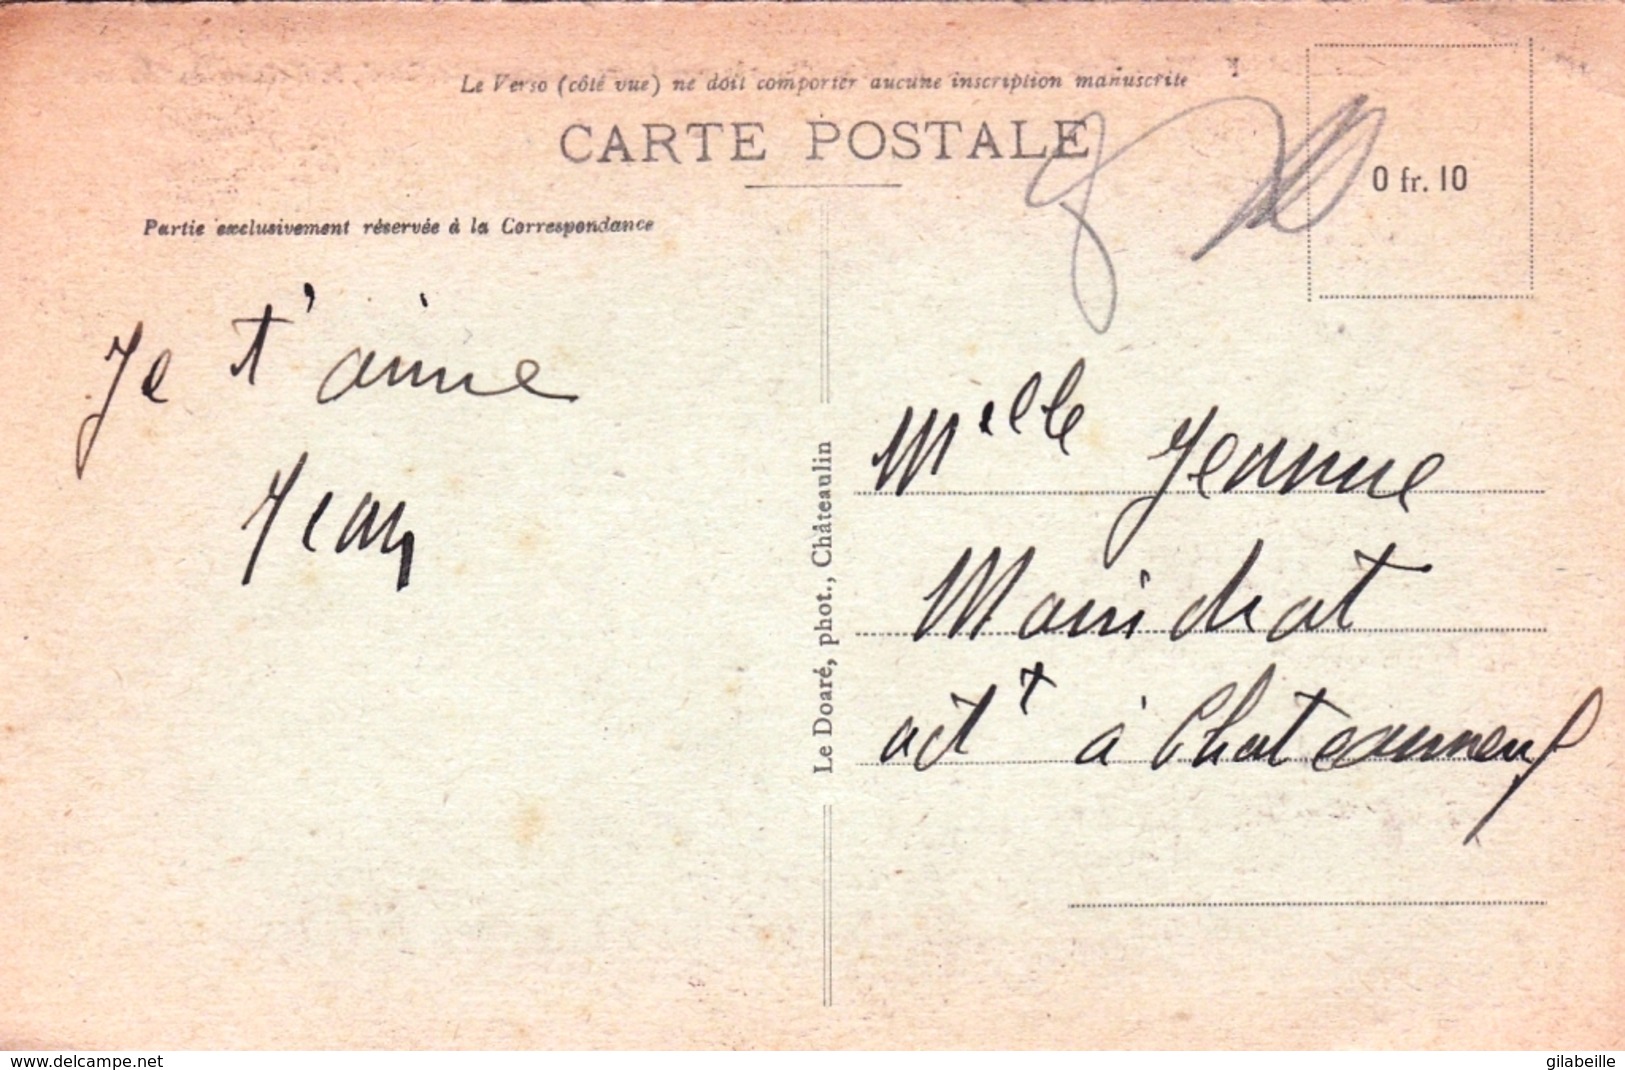 Le Verso (côté vue) ne doit comporter aucune inscription manuscrite
CARTE POSTALE
0 fr. 10
Partie exclusivement réservée à la Correspondance
Je t'aime
Jean
Le Doaré, phot., Châteaulin
Melle Jeanne
à Chateauneuf
www.delcampe.net
gilabeille